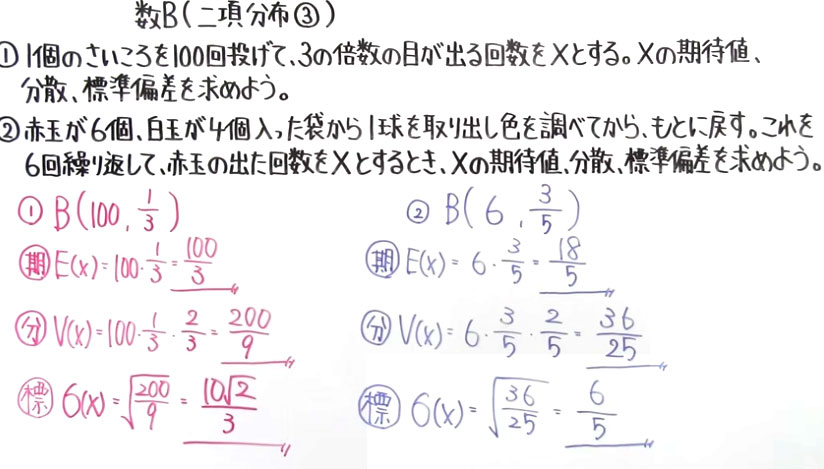 数B(二項分布③)
① 1個のさいころを100回投げて、3の倍数の目が出る回数をXとする。Xの期待値、
分散、標準偏差を求めよう。
② 赤玉が6個、白玉が4個入った袋から1球を取り出し色を調べてから、もとに戻す。これを
6回繰り返して、赤玉の出た回数をXとするとき、Xの期待値、分散、標準偏差を求めよう。
① B(100, 1/3)
期 E(X)=100・1/3=100/3
分 V(X)=100・1/3・2/3=200/9
標 σ(X)=√(200/9)=10√2/3
② B(6, 3/5)
期 E(X)=6・3/5=18/5
分 V(X)=6・3/5・2/5=36/25
標 σ(X)=√(36/25)=6/5